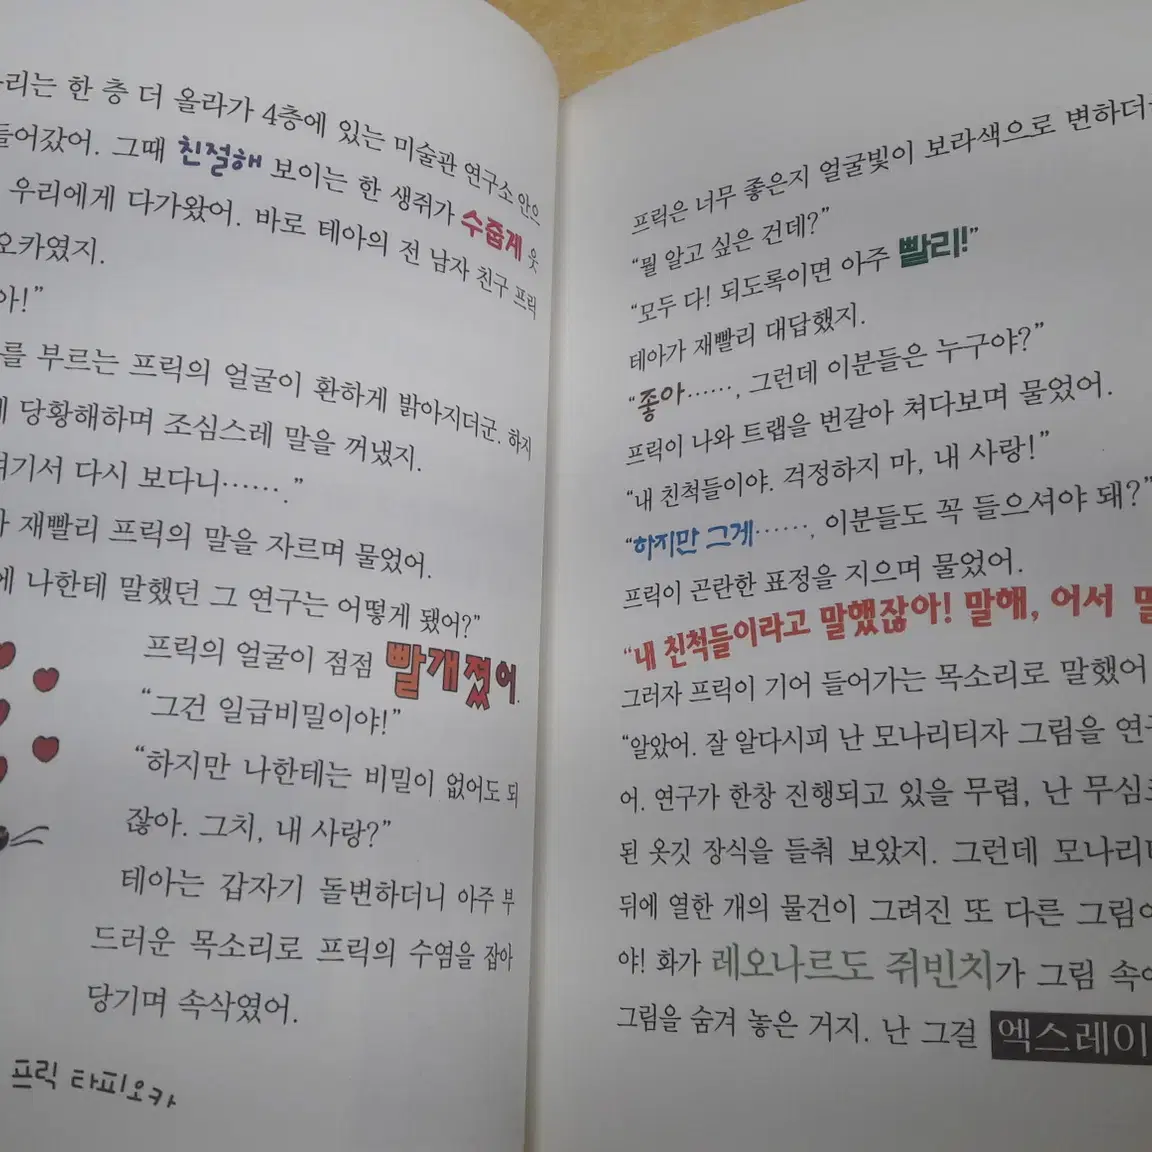 리는 한 층 더 올라가 4층에 있는 미술관 연구소 안으
들어갔어. 그때 친절해 보이는 한 생쥐가 수줍게 웃
우리에게 다가왔어. 바로 테아의 전 남자 친구 프릭
오카였지.
아!”
를 부르는 프릭의 얼굴이 환하게 밝아지더군. 하지
당황해하며 조심스레 말을 꺼냈지.
여기서 다시 보다니…….”
재빨리 프릭의 말을 자르며 물었어.
에 나한테 말했던 그 연구는 어떻게 됐어?”
프릭의 얼굴이 점점 빨개졌어.
“그건 일급비밀이야!”
“하지만 나한테는 비밀이 없어도 되
잖아. 그치, 내 사랑?”
테아는 갑자기 돌변하더니 아주 부
드러운 목소리로 프릭의 수염을 잡아
당기며 속삭였어.
프릭 타피오카
프릭은 너무 좋은지 얼굴빛이 보라색으로 변하더
“뭘 알고 싶은 건데?”
“모두 다! 되도록이면 아주 빨리!”
테아가 재빨리 대답했지.
“좋아……, 그런데 이분들은 누구야?”
프릭이 나와 트랩을 번갈아 쳐다보며 물었어.
“내 친척들이야. 걱정하지 마, 내 사랑!”
“하지만 그게……, 이분들도 꼭 들으셔야 돼?”
프릭이 곤란한 표정을 지으며 물었어.
“내 친척들이라고 말했잖아! 말해, 어서 말
그러자 프릭이 기어 들어가는 목소리로 말했어
“알았어. 잘 알다시피 난 모나리티자 그림을 연구
어. 연구가 한창 진행되고 있을 무렵, 난 무심코
된 옷깃 장식을 들춰 보았지. 그런데 모나리티
뒤에 열한 개의 물건이 그려진 또 다른 그림이
야! 화가 레오나르도 쥐빈치가 그림 속에
그림을 숨겨 놓은 거지. 난 그걸 엑스레이